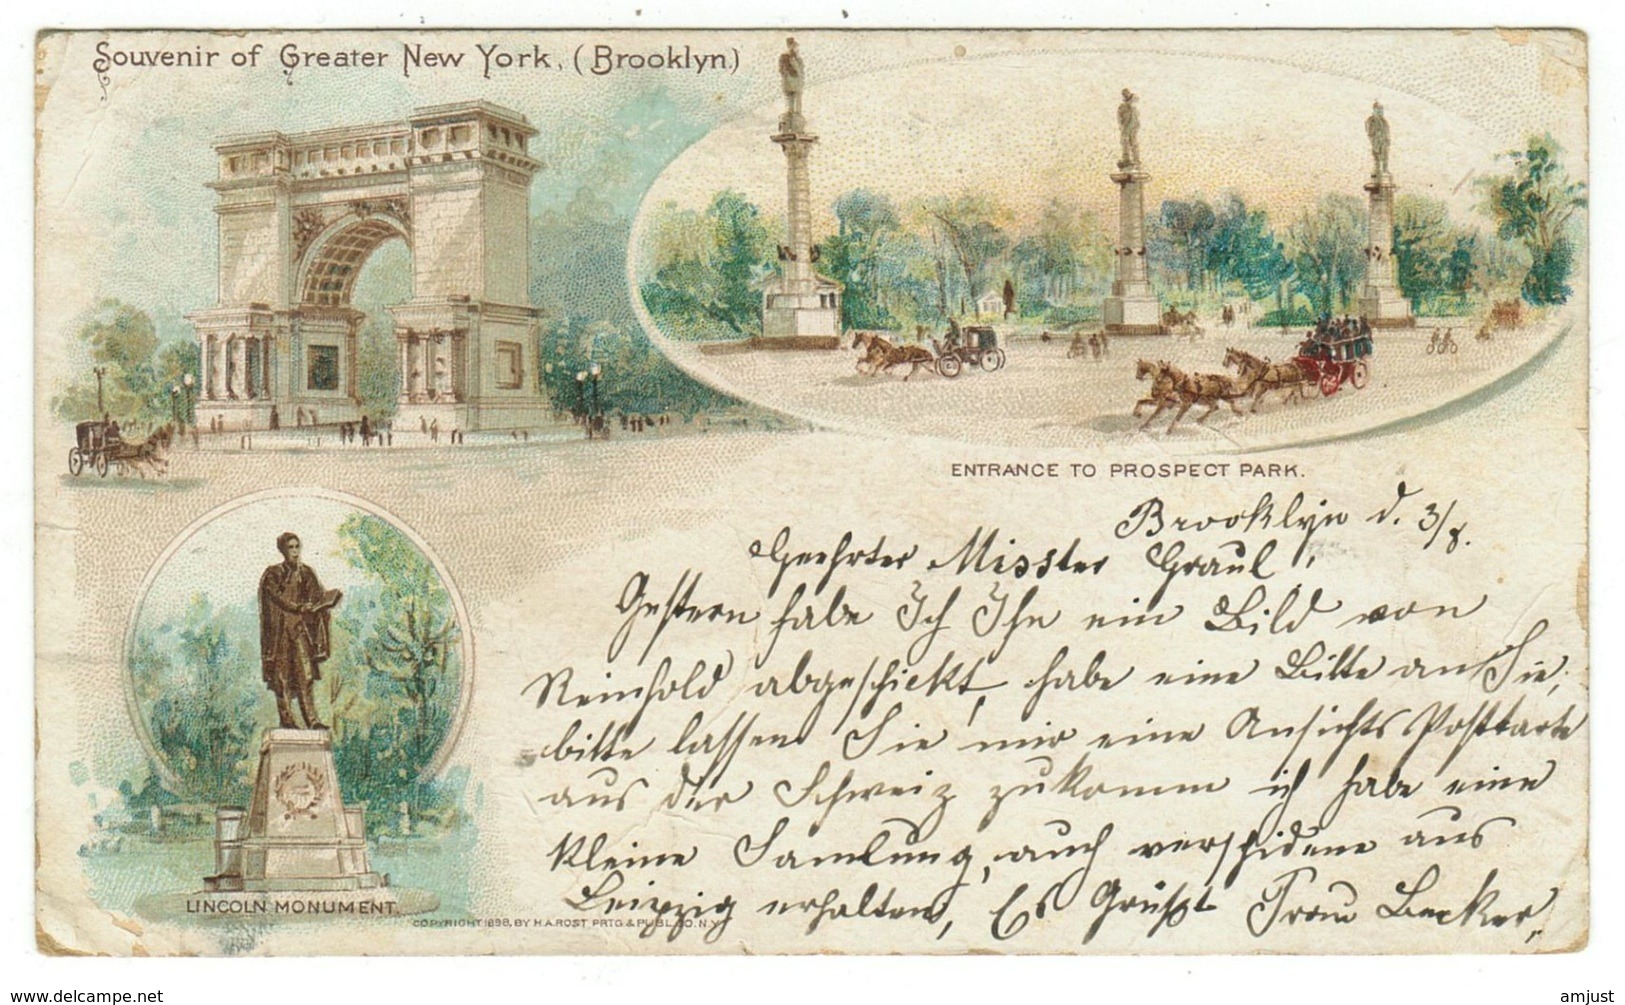 Souvenir of Greater New York, (Brooklyn)
ENTRANCE TO PROSPECT PARK.
Brooklyn d. 3/8.
Geehrter Misster Graul!
Gestern habe Ich Ihn ein Bild von
Reinhold abgeschickt, habe eine Bitte an Sie,
bitte lassen Sie mir eine Ansichts Postkarte
aus der Schweiz zukomm ich habe eine
kleine Samlung, auch verschidene aus
Leipzig erhalten, Es Grüßt Frau Becker,
LINCOLN MONUMENT.
COPYRIGHT 1898, BY H.A. ROST PRTG & PUBL. CO. N.Y.
delcampe.net
amjust